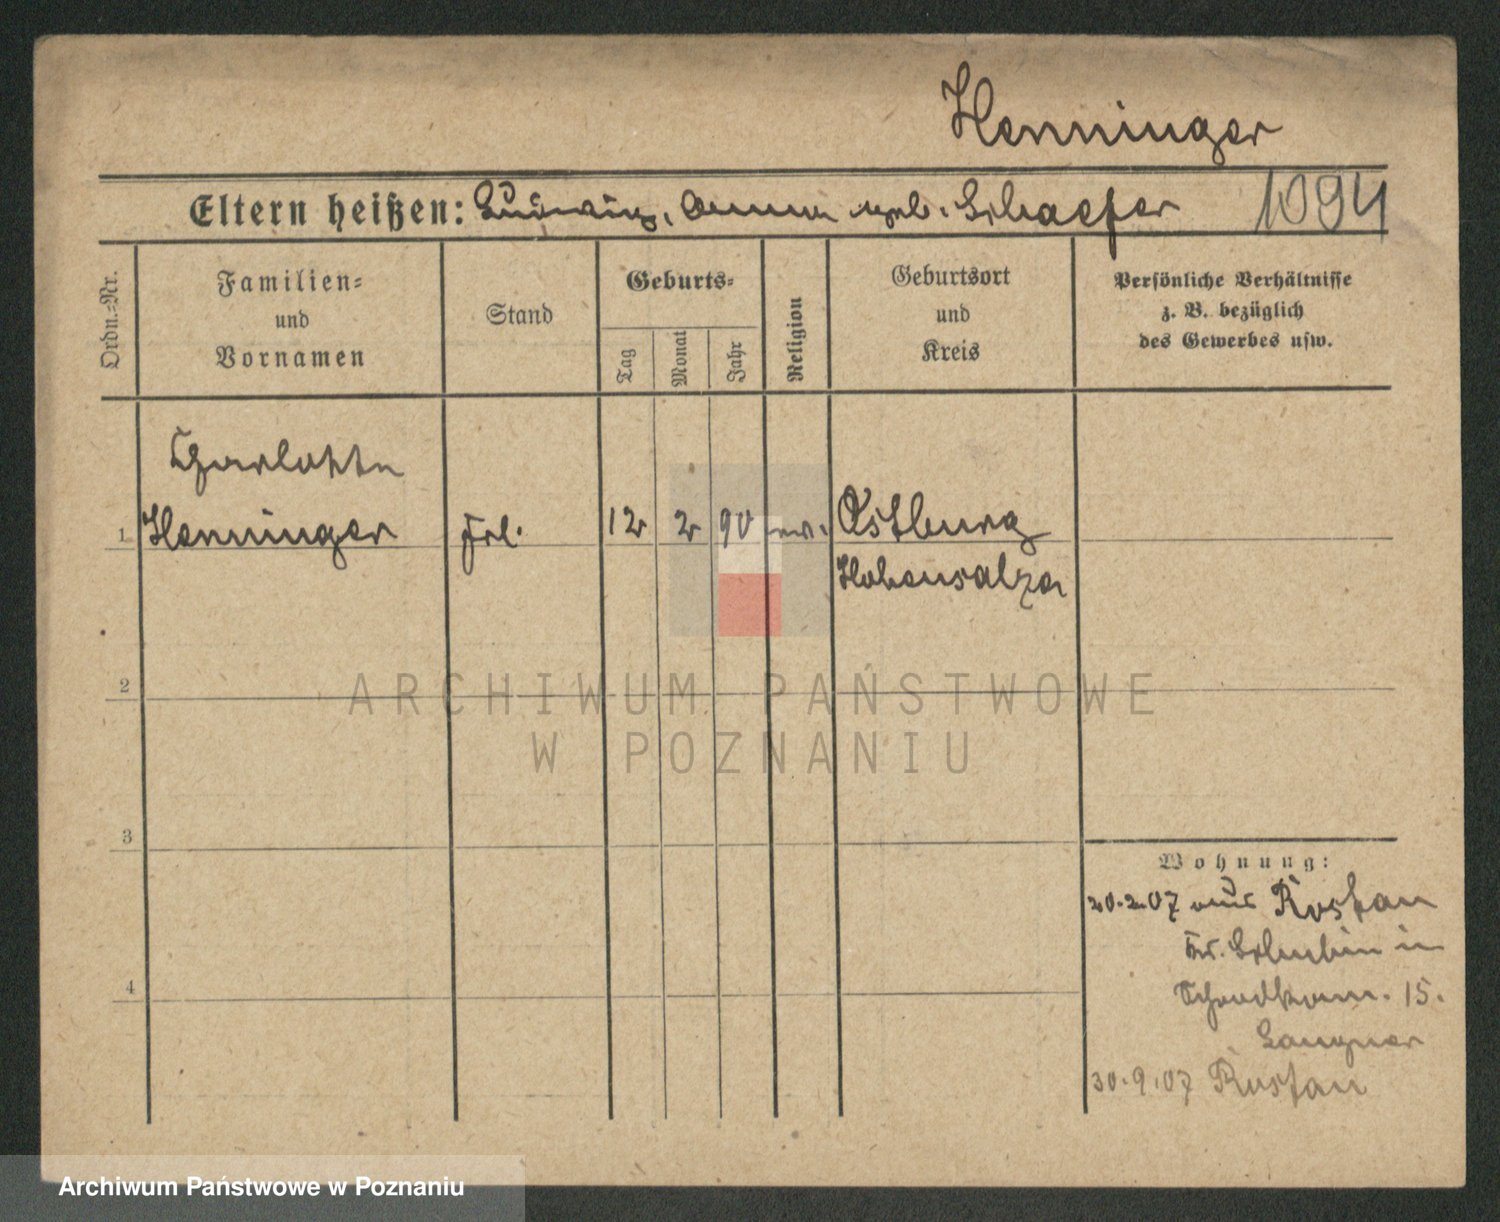 Henninger
Eltern heißen: Ludwig, Anna geb. Schaefer 1094
Ordn.-Nr.
Familien-
und
Vornamen
Stand
Geburts-
Tag
Monat
Jahr
Religion
Geburtsort
und
Kreis
Persönliche Verhältnisse
z. B. bezüglich
des Gewerbes usw.
Charlotte
1 Henninger Frl. 12 2 90 ev. Ostburg
Hohensalza
2
3
4
Wohnung:
20.2.07 aus Rostau
Kr. Schubin in
15.
Langner
30.9.07 Rostau
ARCHIWUM PAŃSTWOWE
W POZNANIU
Archiwum Państwowe w Poznaniu